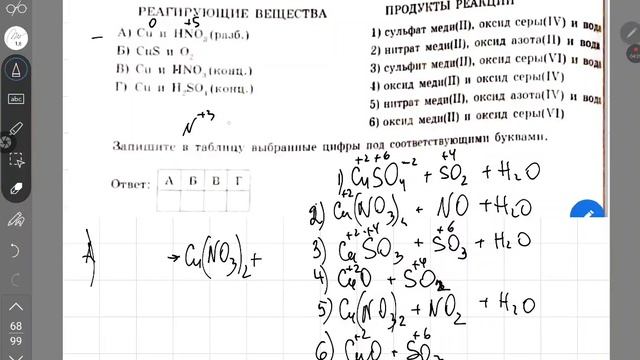 РЕАГИРУЮЩИЕ ВЕЩЕСТВА
ПРОДУКТЫ РЕАКЦИИ
0 +5
А) Cu и HNO₃ (разб.)
Б) CuS и O₂
В) Cu и HNO₃ (конц.)
Г) Cu и H₂SO₄ (конц.)
1) сульфат меди(II), оксид серы(IV) и вода
2) нитрат меди(II), оксид азота(II) и вода
3) сульфит меди(II), оксид серы(VI) и вода
4) оксид меди(II) и оксид серы(IV)
5) нитрат меди(II), оксид азота(IV) и вода
6) оксид меди(II) и оксид серы(VI)
N⁺³
Запишите в таблицу выбранные цифры под соответствующими буквами.
Ответ:
А Б В Г
+2 +6 -2 +4
1) CuSO₄ + SO₂ + H₂O
+2
2) Cu(NO₃)₂ + NO + H₂O
А) → Cu(NO₃)₂ +
+2 +4 +6
3) CuSO₃ + SO₃ + H₂O
+2 +4
4) CuO + SO₂
5) Cu(NO₃)₂ + NO₂ + H₂O
+2 +6
6) CuO + SO₃
abc
1.8
68
99